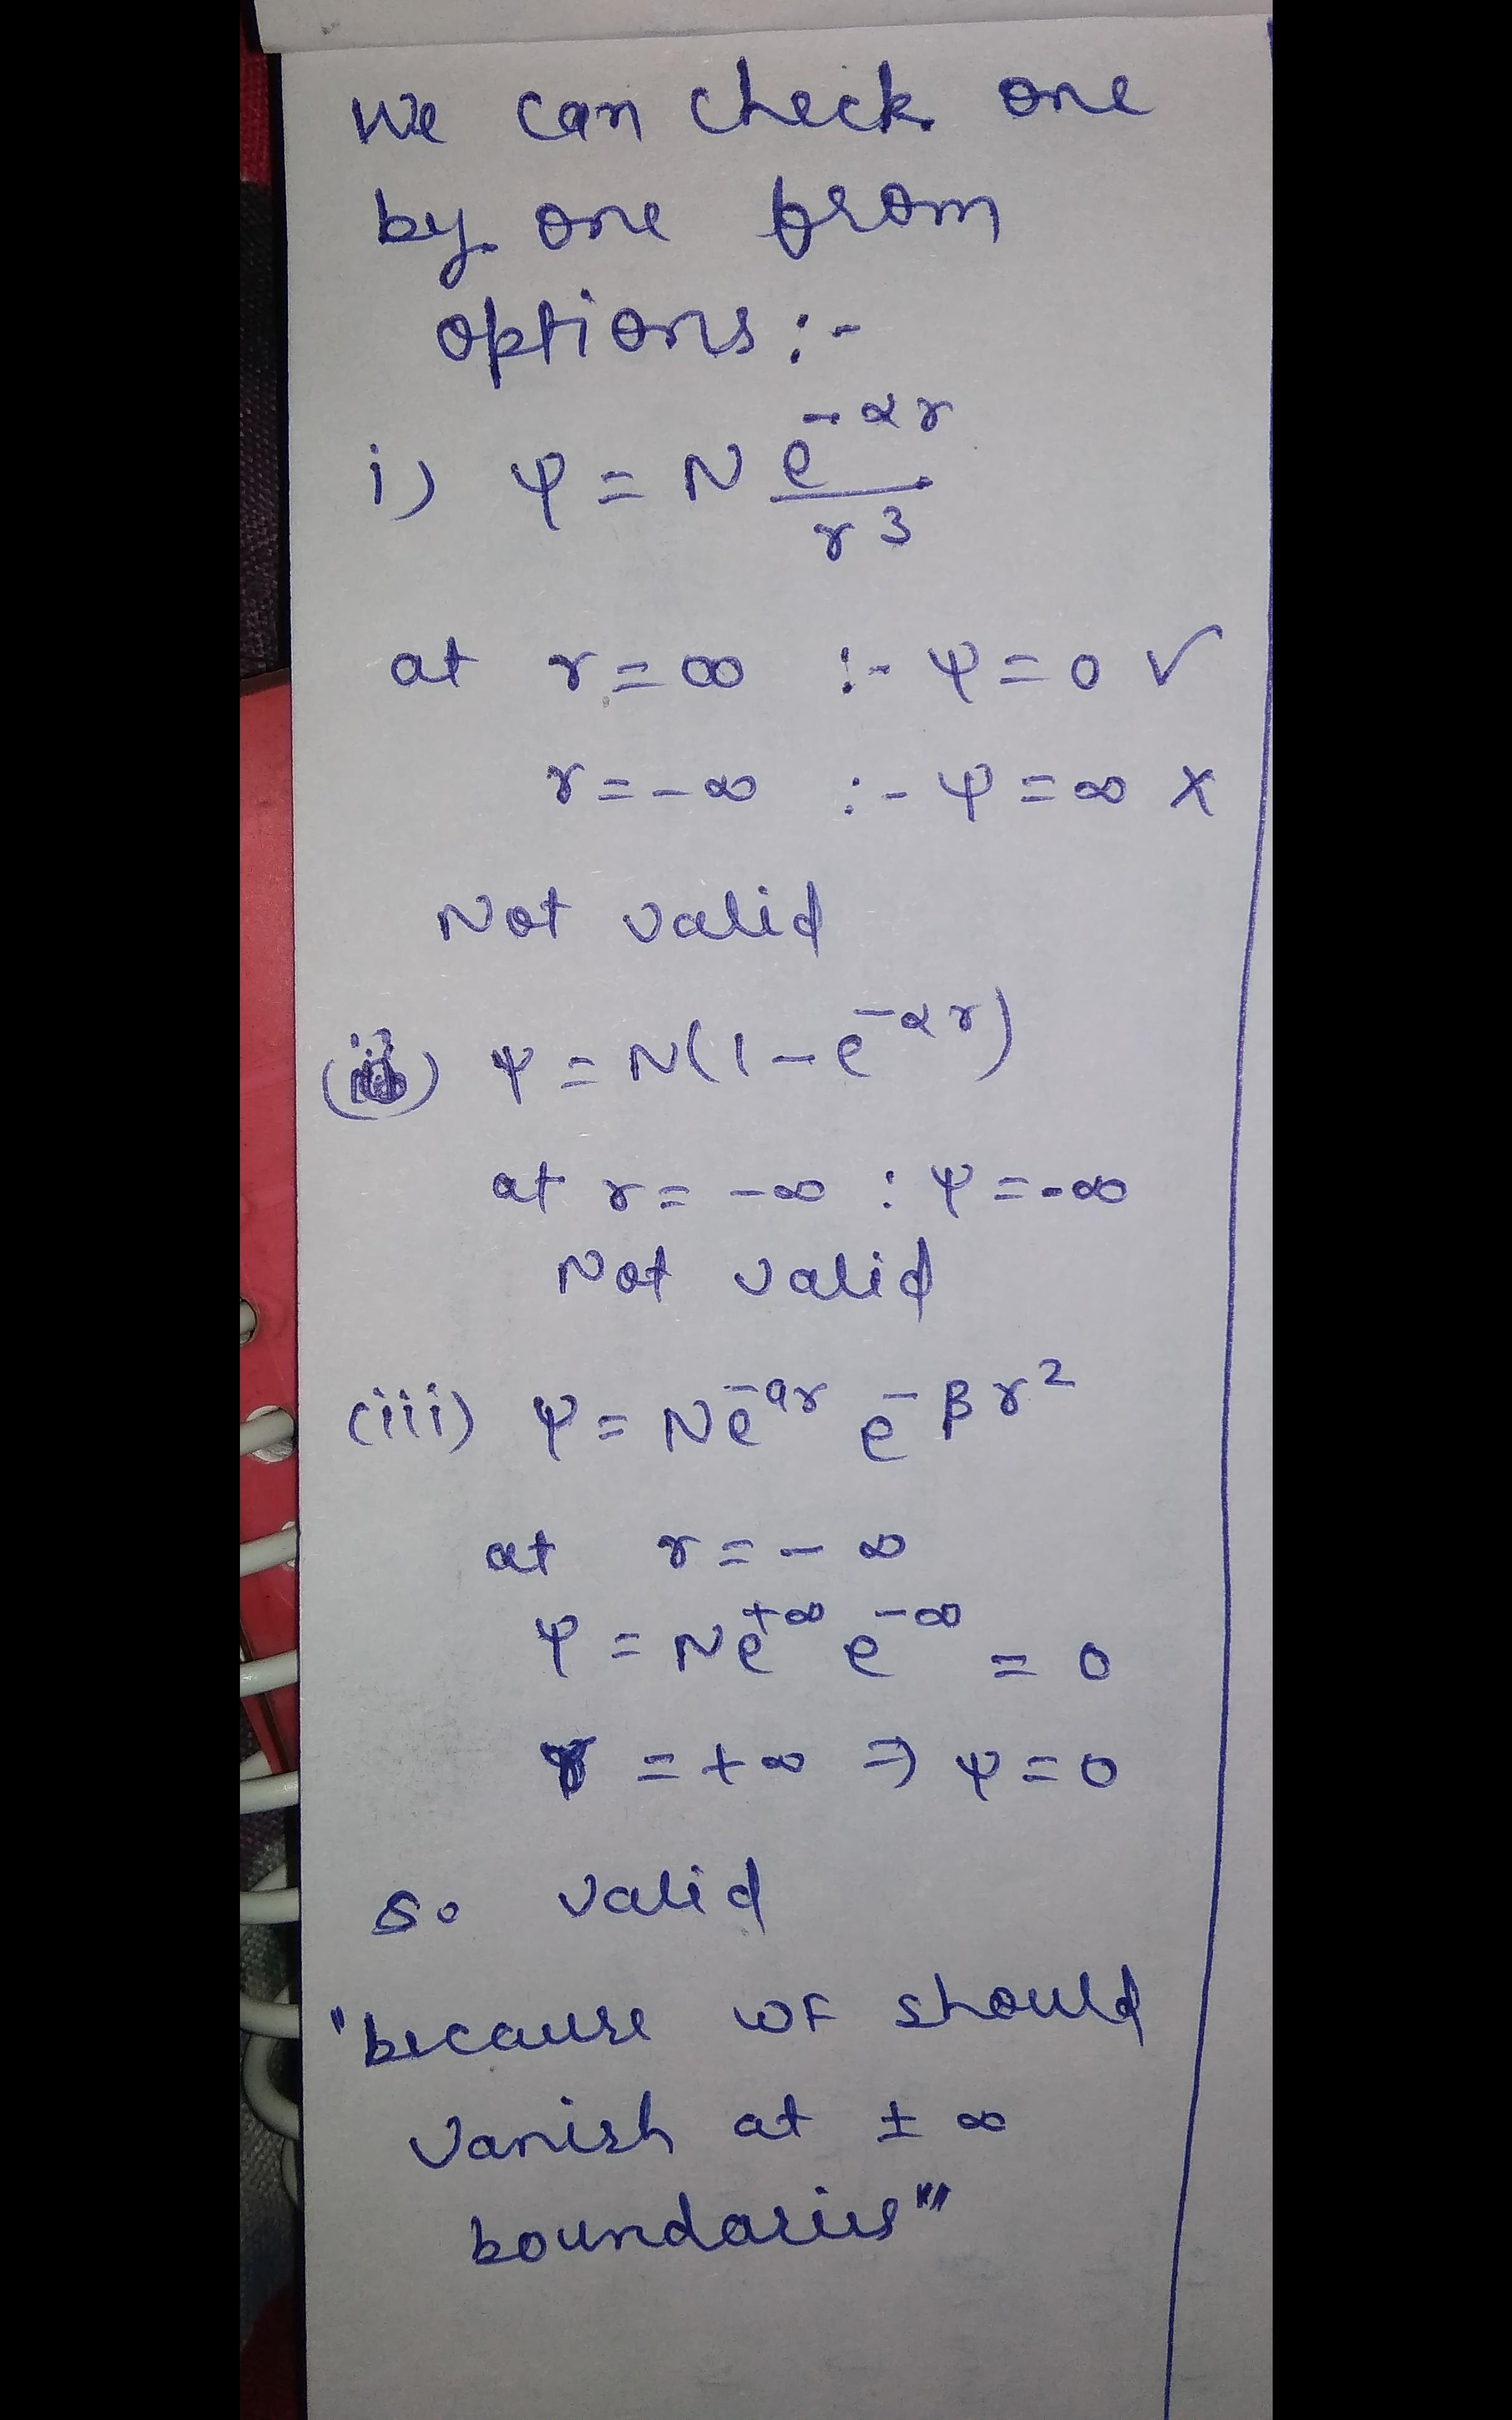 We can check one
by one from
options :-
i) ψ = N e^{-αr} / r^3
at r = ∞ :- ψ = 0 ✓
r = -∞ :- ψ = ∞ ✗
Not valid
(ii) ψ = N(1 - e^{-αr})
at r = -∞ : ψ = -∞
Not valid
(iii) ψ = N e^{-ar} e^{-βr^2}
at r = -∞
ψ = N e^{+∞} e^{-∞} = 0
r = +∞ ⇒ ψ = 0
So valid
"because WF should
vanish at ± ∞
boundaries"'